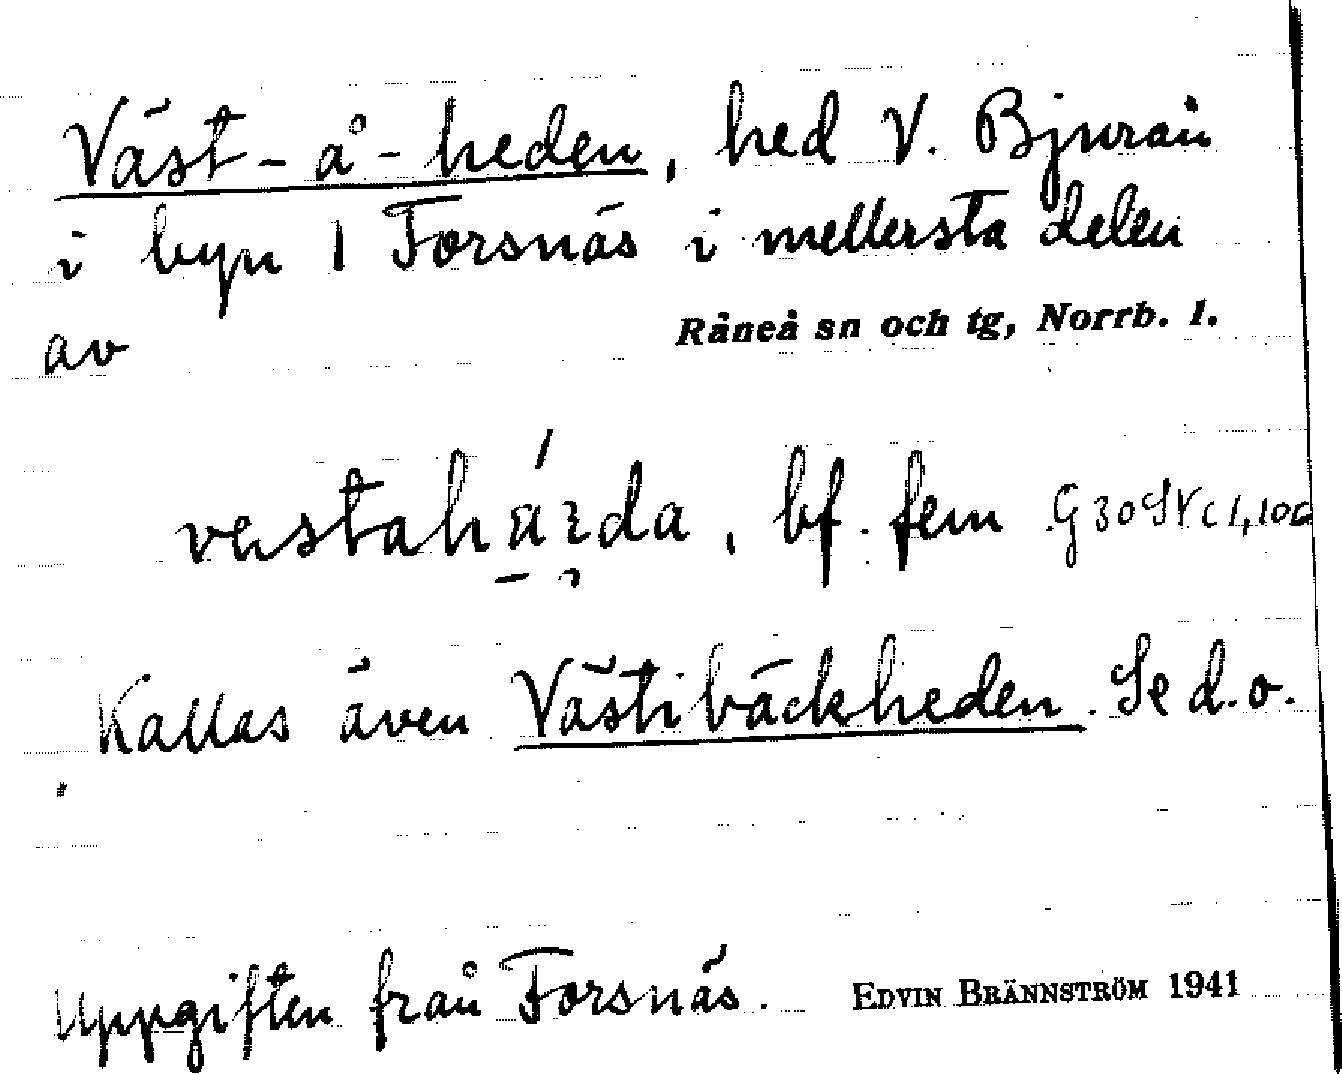 Väst-å-heden, hed V. Bjurån
i byn 1 Forsnäs i mellersta delen
av Råneå sn och tg, Norrb. l.
vestahärda, bf. fem
Kallas även Västibäckheden. Se d.o.
Uppgiften från Forsnäs. EDVIN BRÄNNSTRÖM 1941